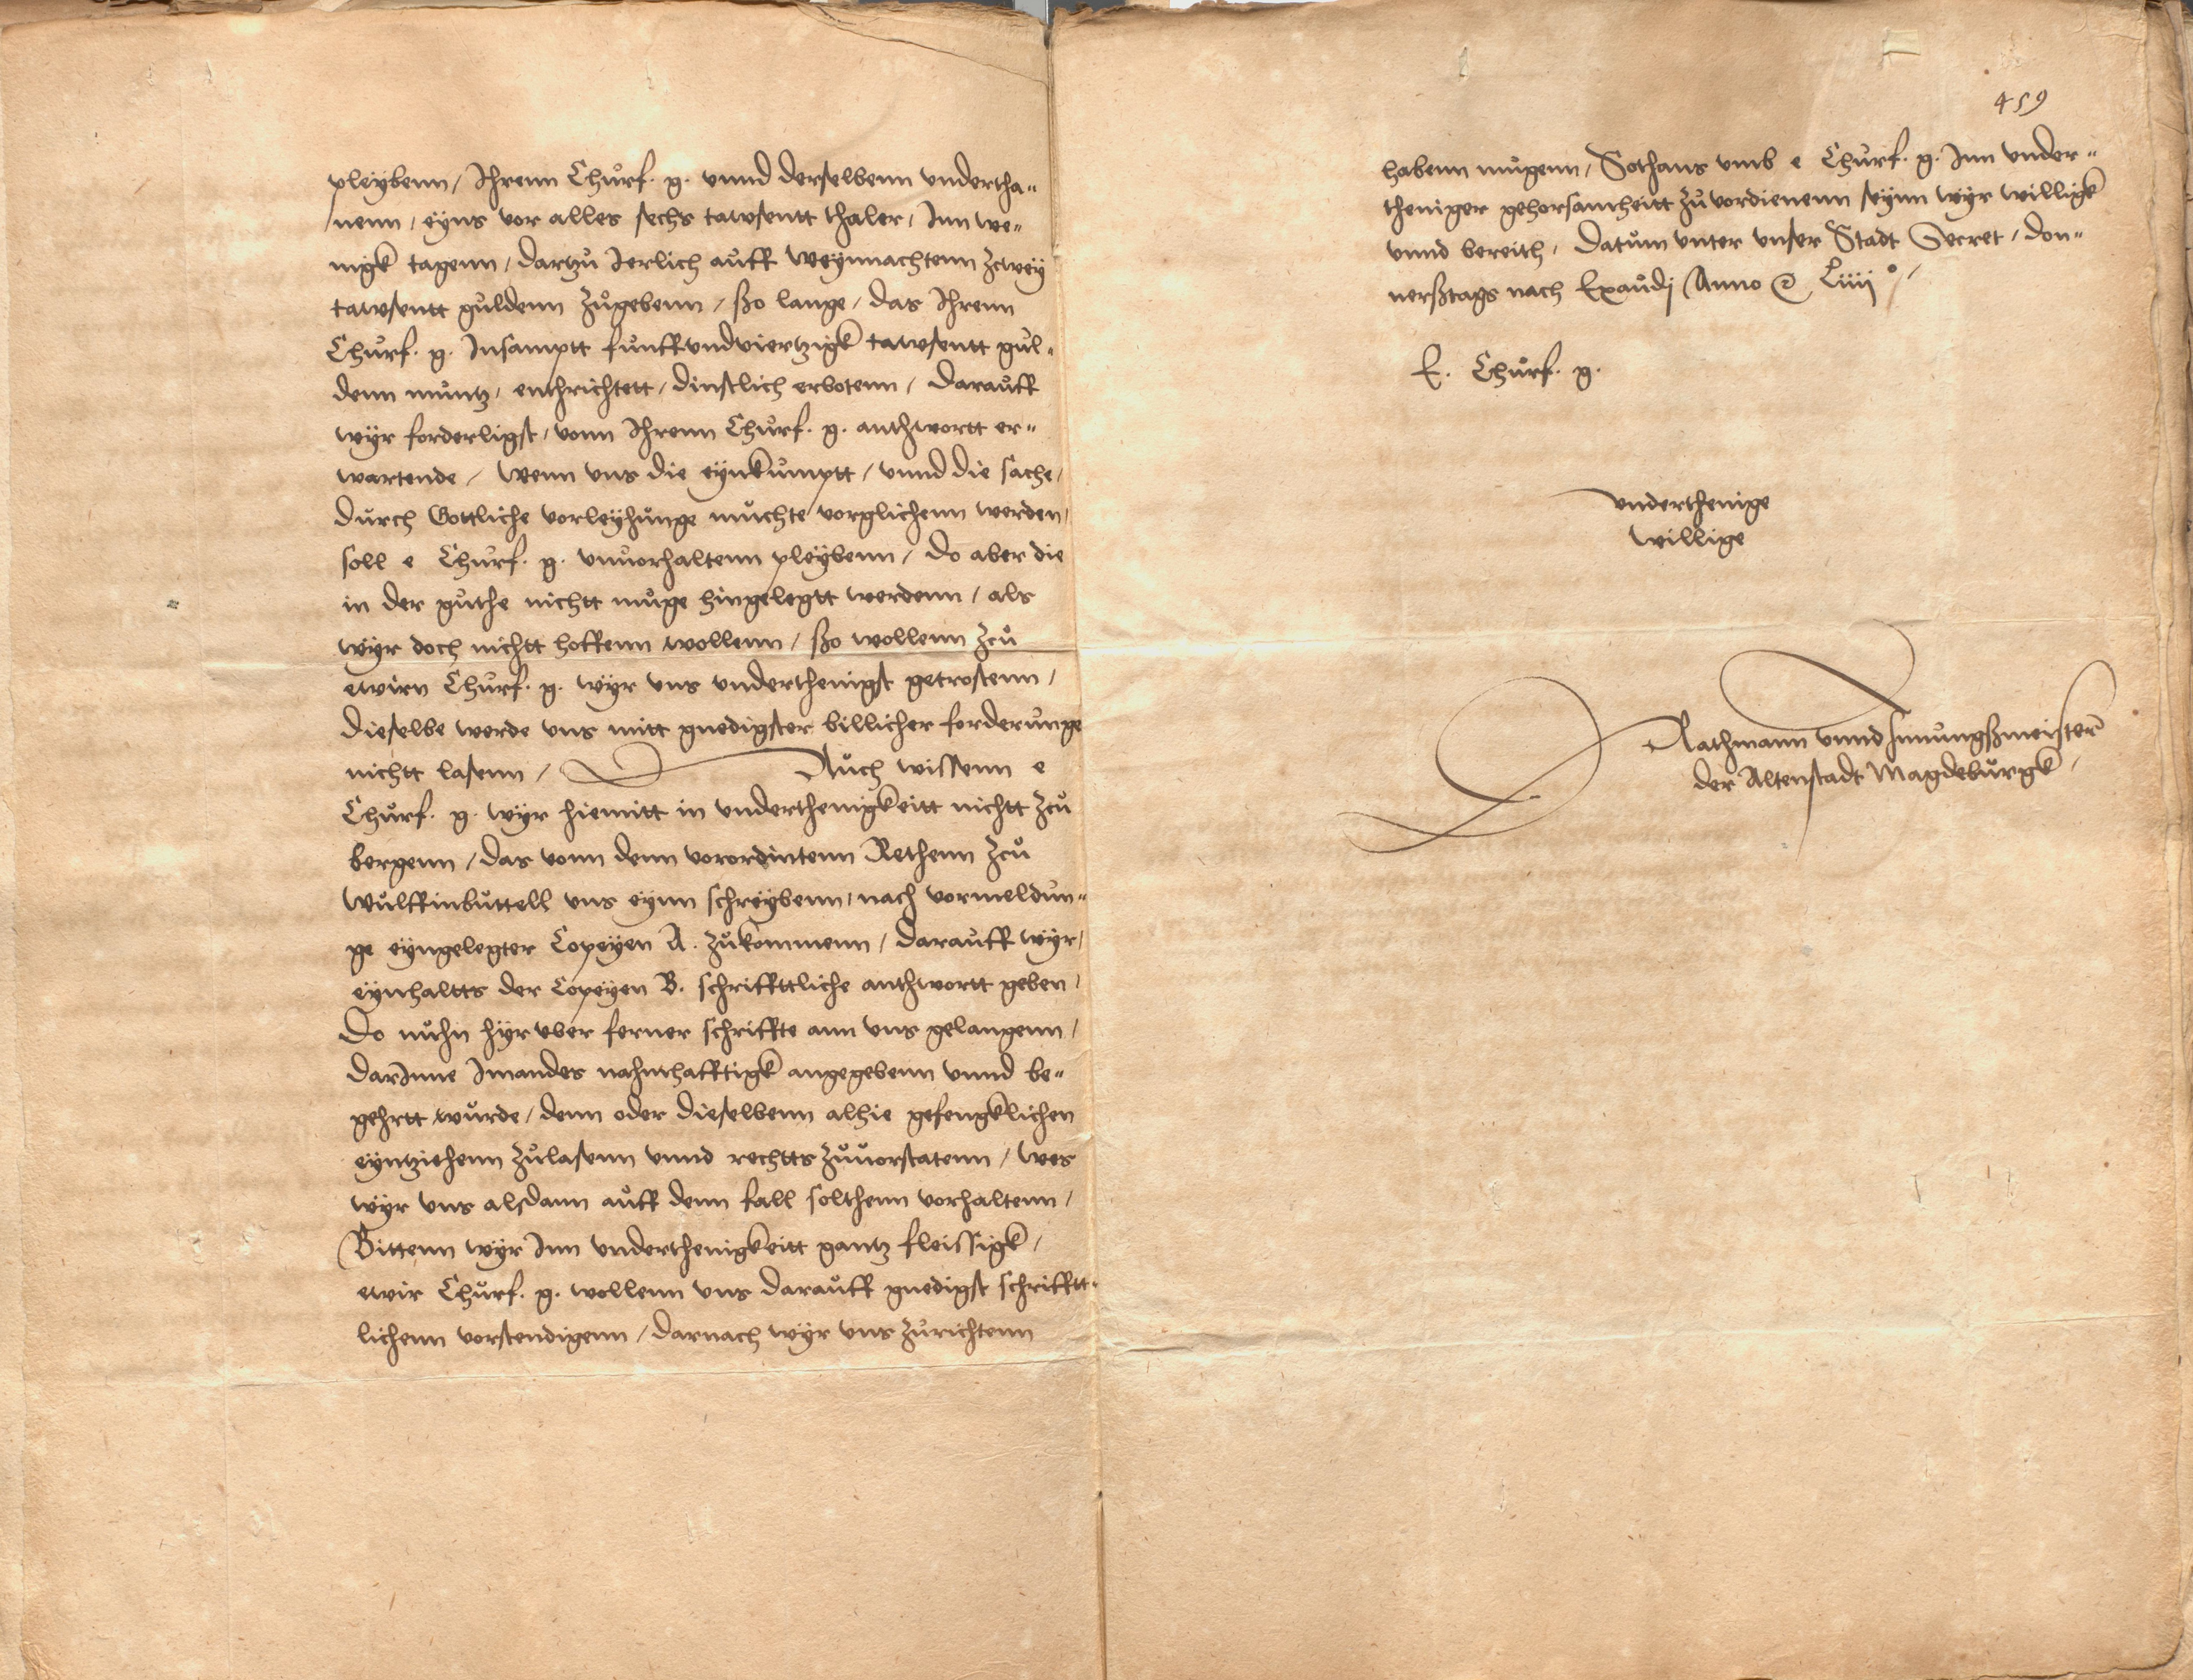 pleybenn / Ihrenn Churf. g. vnnd derselbenn vndertha„
nenn / eyns vor alles sechs tawsentt thaler / Inn we„
nigk tagenn / dartzu Ierlich auff weynnachtenn zcwey
tawsentt guldenn zugebenn / sso lange / das Ihrenn
Churf. g. Insamptt funffvndviertzigk tawsentt gul„
denn muntz / enthrichtett / dinstlich erbotenn / Darauff
wyr forderligst / vonn Ihrenn Churf. g. anthwortt er„
wartende / Wenn vns die eynkumptt / vnnd die sache /
durch Gottliche vorleyhunge muchte vorglichenn werden /
soll e Churf. g. vnuorhaltenn pleybenn / Do aber die
in der guthe nichtt muge hingelegtt werdenn / als
wyr doch nichtt hoffenn wollenn / sso wollenn zcu
ewirn Churf. g. wyr vns vnderthenigst getrostenn /
dieselbe werde vns mitt gnedigster billicher forderunge
nichtt lasenn / Auch wissenn e
Churf. g. wyr hiemitt in vnderthenigkeitt nichtt zcu
bergenn / das vonn denn vorordintenn Rethenn zcu
Wulffinbuttell vns eynn schreybenn / nach vormeldun„
ge eyngelegter Copeyen A. zukommenn / Darauff wyr /
eynhaltts der Copeyen B. schriffttliche anthwortt geben /
Do nuhn hyr vber ferner schriffte ann vns gelangenn /
darInne Imandes nahmhafftigk angegebenn vnnd be„
gehrtt wurde / denn oder dieselbenn alhie gefengklichen
eyntziehenn zulasenn vnnd rechtts zuuorstatenn / wes
wyr vns alsdann auff denn fall solthenn vorhaltenn /
Bittenn wyr Inn vnderthenigkeitt gantz fleissigk /
ewir Churf. g. wollenn vns darauff gnedigst schrifftt„
lichenn vorstendigenn / darnach wyr vns zurichtenn
459
habenn mugenn / Sothans vmb e Churf. g. Inn vnder„
theniger gehorsamheitt zuvordienenn seynn wyr willigk
vnnd bereith / Datum vnter vnser Stadt Secret / don„
nersstags nach Exaudj Anno &c Liiij°/
E. Churf. g.
vnderthenige
willige
Rathmann vnnd Innungssmeister
der Altenstadt Magdeburgk /